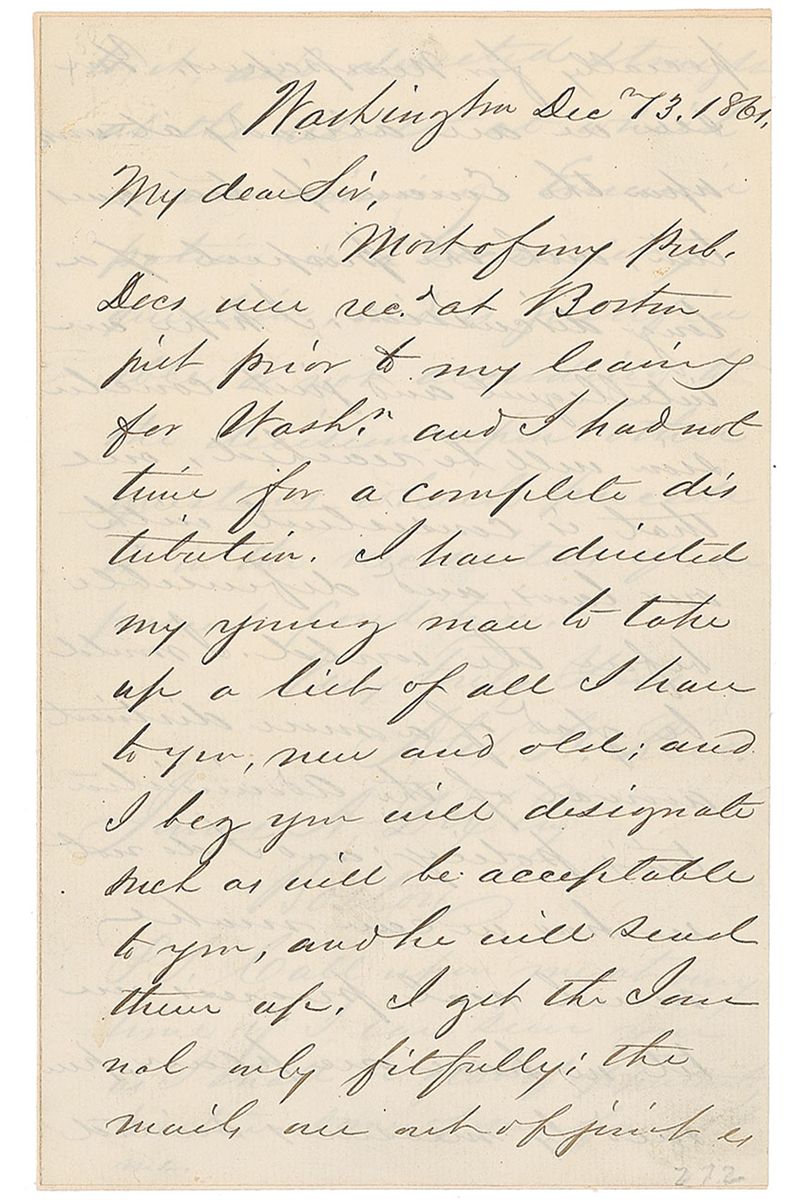 Washington Decr 13. 1861.
My dear Sir,
Most of my Pub.
Docs were recd. at Boston
just prior to my leaving
for Washn. and I had not
time for a complete dis
tribution. I have directed
my young man to take
up a list of all I have
to you, new and old; and
I beg you will designate
such as will be acceptable
to you, and he will send
them up. I get the Jour
nal only fitfully; the
mails are out of joint es
272